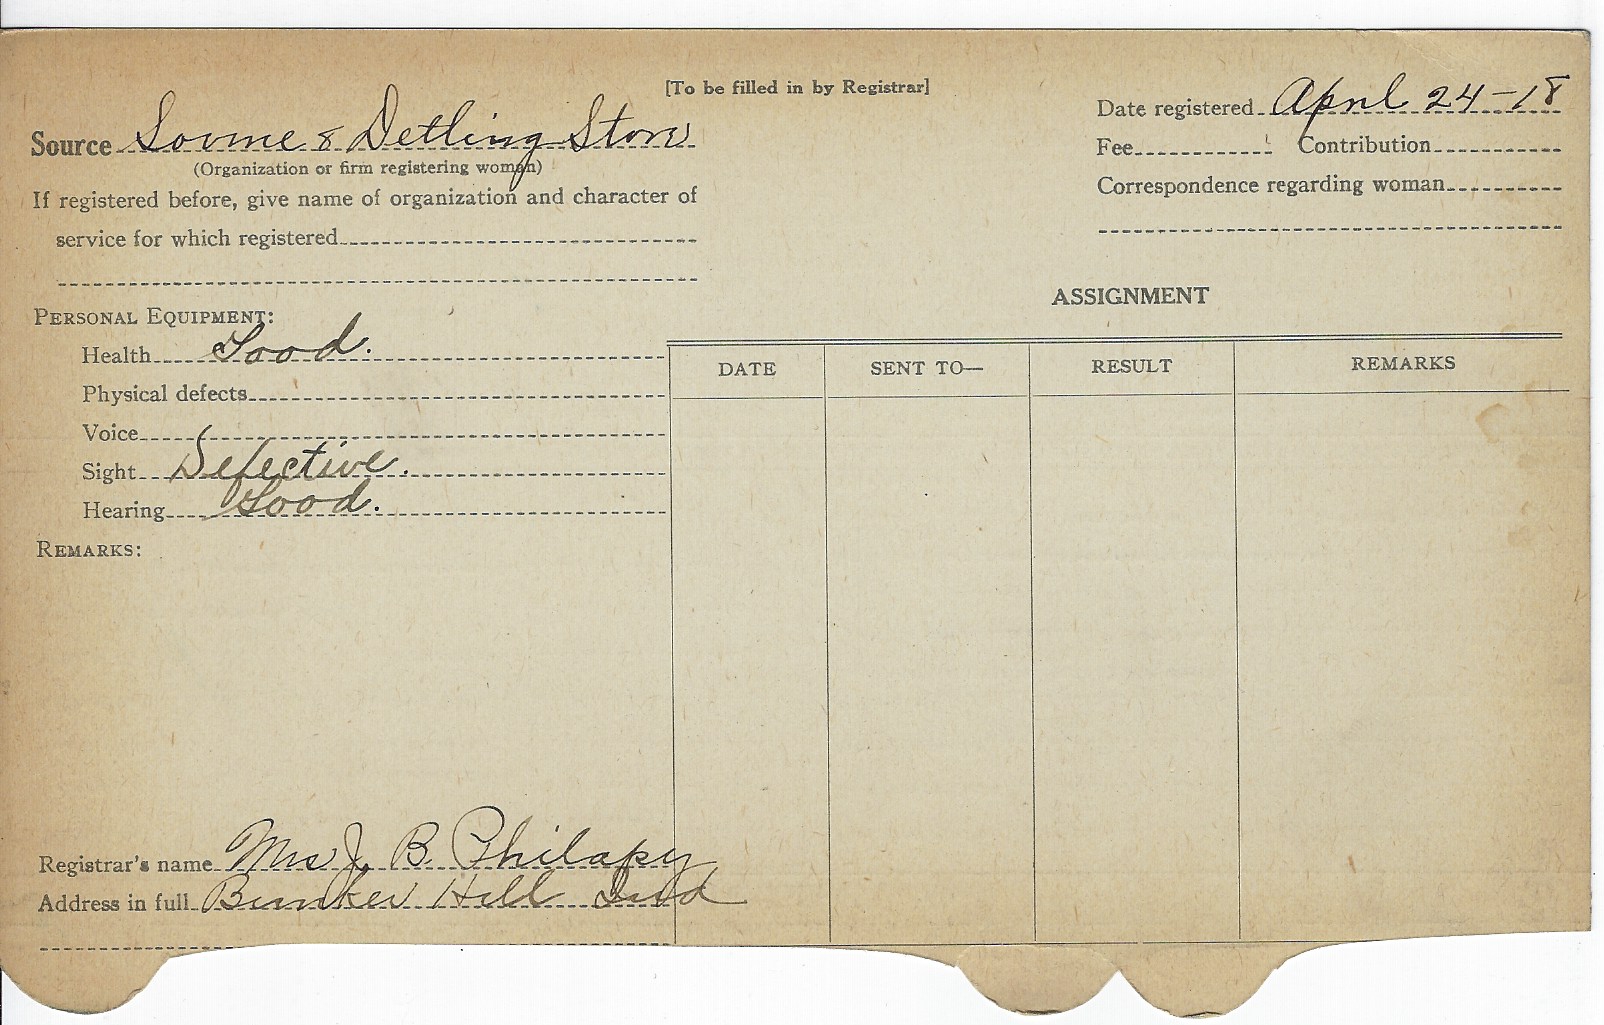 [To be filled in by Registrar]
Source Lovine & Detling Store
(Organization or firm registering woman)
If registered before, give name of organization and character of
service for which registered
Date registered April 24-18
Fee Contribution
Correspondence regarding woman
PERSONAL EQUIPMENT:
Health Good.
Physical defects
Voice
Sight Defective.
Hearing Good.
REMARKS:
Registrar's name Mrs J. B. Philapy
Address in full Bunker Hill Ind
ASSIGNMENT
DATE SENT TO— RESULT REMARKS